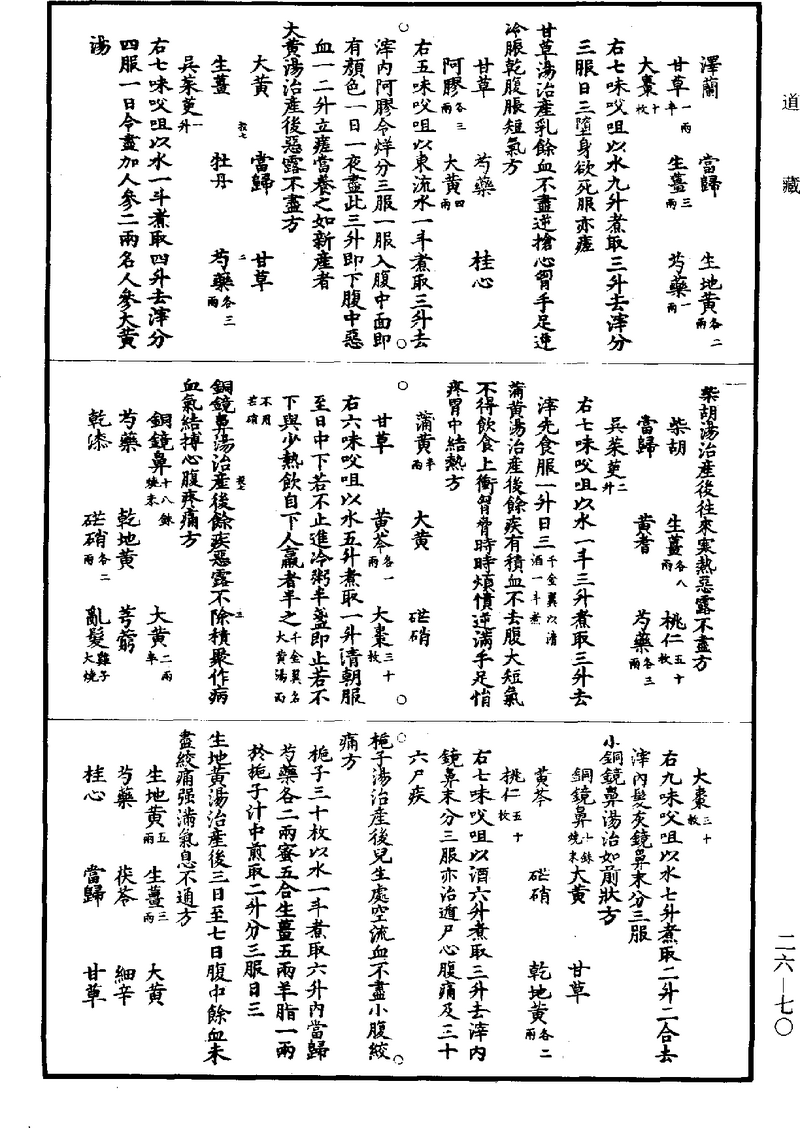 道藏
澤蘭　當歸　生地黃各二兩
甘草一兩半　生薑三兩　芍藥一兩
大棗十枚
右七味㕮咀以水九升煮取三升去滓分
三服日三墮身欲死服亦瘥
甘草湯治產乳餘血不盡逆搶心胷手足逆
冷脹乾腹脹短氣方
甘草　芍藥　桂心
阿膠各三兩　大黃四兩
右五味㕮咀以東流水一斗煮取三升去
滓內阿膠令烊分三服一服入腹中面即
有顏色一日一夜盡此三升即下腹中惡
血一二升立瘥當養之如新產者
大黃湯治產後惡露不盡方
大黃　當歸　甘草
生薑　牡丹　芍藥各三兩
吳茱萸一升
右七味㕮咀以水一斗煮取四升去滓分
四服一日令盡加人參二兩名人參大黃
湯
柴胡湯治產後往來寒熱惡露不盡方
柴胡　生薑各八兩　桃仁五十枚
當歸　黃耆　芍藥各三兩
吳茱萸二升
右七味㕮咀以水一斗三升煮取三升去
滓先食服一升日三千金翼以清酒一斗煮
蒲黃湯治產後餘疾有積血不去腹大短氣
不得飲食上衝胷脅時時煩憒逆滿手足悁
疼胃中結熱方
蒲黃半兩　大黃　芒硝
甘草　黃芩各一兩　大棗三十枚
右六味㕮咀以水五升煮取一升清朝服
至日中下若不止進冷粥半盞即止若不
下與少熱飲自下人羸者半之千金翼名大黃湯而
不用芒硝
銅鏡鼻湯治產後餘疾惡露不除積聚作病
血氣結摶心腹疼痛方
銅鏡鼻十八銖燒末　大黃二兩半
芍藥　乾地黃　芎藭
乾漆　芒硝各二兩　亂髮雞子大燒
大棗三十枚
右九味㕮咀以水七升煮取二升二合去
滓內髮灰鏡鼻末分三服
小銅鏡鼻湯治如前狀方
銅鏡鼻十銖燒末　大黃　甘草
黃芩　芒硝　乾地黃各二兩
桃仁五十枚
右七味㕮咀以酒六升煮取三升去滓內
鏡鼻末分三服亦治遁尸心腹痛及三十
六尸疾
梔子湯治產後兒生處空流血不盡小腹絞
痛方
梔子三十枚以水一斗煮取六升內當歸
芍藥各二兩蜜五合生薑五兩羊脂一兩
於梔子汁中煎取二升分三服日三
生地黃湯治產後三日至七日腹中餘血未
盡絞痛强滿氣息不通方
生地黃五兩　生薑三兩　大黃
芍藥　茯苓　細辛
桂心　當歸　甘草
二六—七〇